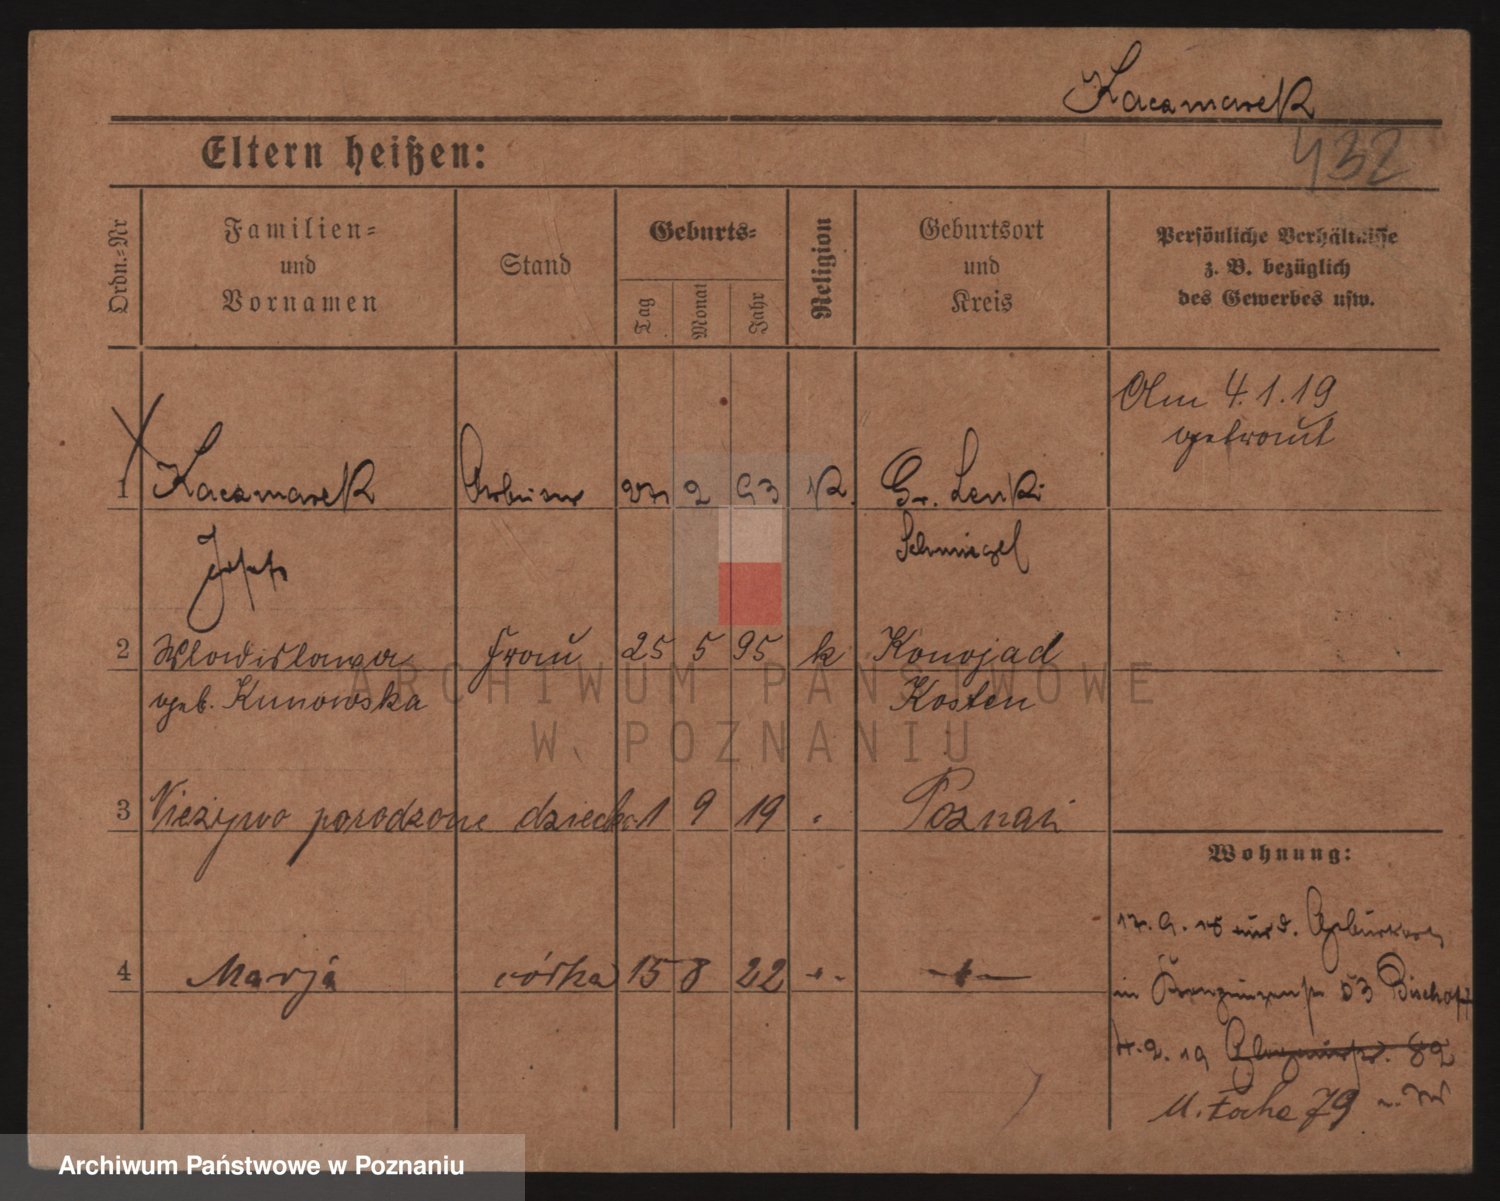 Kaczmarek
432
Eltern heißen:
Ordn.-Nr
Familien-
und
Vornamen
Stand
Geburts-
Tag
Monat
Jahr
Religion
Geburtsort
und
Kreis
Persönliche Verhältnisse
z. B. bezüglich
des Gewerbes usw.
Am 4.1.19
getraut
1 Kaczmarek Arbeiter 2 93 K. Gr. Lenki
Josef Schmiegel
2 Wladislawa Frau 25 5 95 k Konojad
geb. Kunowska Kosten
ARCHIWUM PAŃSTWOWE
W POZNANIU
3 Nieżywo porodzone dziecko 1 9 19 . Poznań
Wohnung:
4 Marja córka 15 8 22
in 53 Bischoff
2. 19 82
M. Focha 79
Archiwum Państwowe w Poznaniu